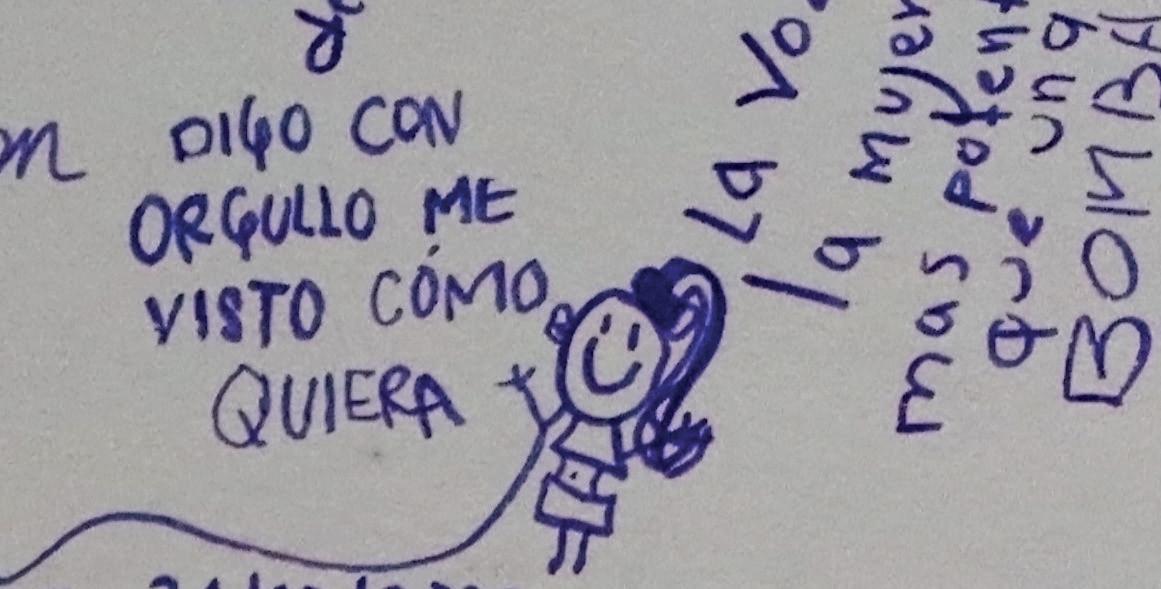 DIGO CON
ORGULLO ME
VISTO CÓMO
QUIERA
La
la mujer
mas
que una
BOMBA